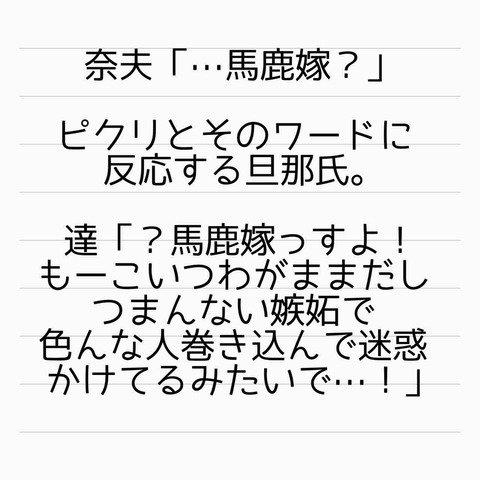 奈夫「…馬鹿嫁？」
ピクリとそのワードに
反応する旦那氏。
達「？馬鹿嫁っすよ！
もーこいつわがままだし
つまんない嫉妬で
色んな人巻き込んで迷惑
かけてるみたいで…！」